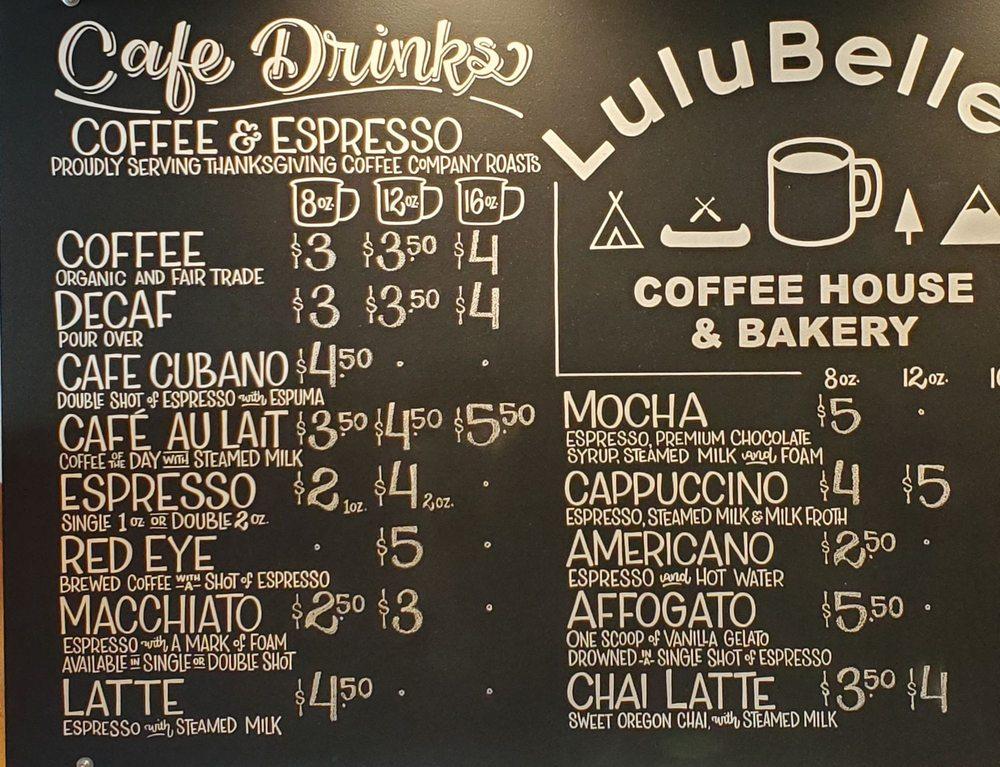 Cafe Drinks
COFFEE & ESPRESSO
PROUDLY SERVING THANKSGIVING COFFEE COMPANY ROASTS
8oz. 12oz. 16oz.
COFFEE $3 $3.50 $4
ORGANIC AND FAIR TRADE
DECAF $3 $3.50 $4
POUR OVER
CAFE CUBANO $4.50
DOUBLE SHOT of ESPRESSO with ESPUMA
CAFÉ AU LAIT $3.50 $4.50 $5.50
COFFEE OF THE DAY WITH STEAMED MILK
ESPRESSO $2 1oz. $4 2oz.
SINGLE 1oz OR DOUBLE 2oz.
RED EYE $5
BREWED COFFEE WITH A SHOT of ESPRESSO
MACCHIATO $2.50 $3
ESPRESSO with A MARK of FOAM
AVAILABLE IN SINGLE OR DOUBLE SHOT
LATTE $4.50
ESPRESSO with STEAMED MILK
LuluBelle
COFFEE HOUSE
& BAKERY
8oz. 12oz.
MOCHA $5
ESPRESSO, PREMIUM CHOCOLATE
SYRUP, STEAMED MILK and FOAM
CAPPUCCINO $4 $5
ESPRESSO, STEAMED MILK & MILK FROTH
AMERICANO $2.50
ESPRESSO and HOT WATER
AFFOGATO $5.50
ONE SCOOP of VANILLA GELATO
DROWNED IN A SINGLE SHOT of ESPRESSO
CHAI LATTE $3.50 $4
SWEET OREGON CHAI, with STEAMED MILK